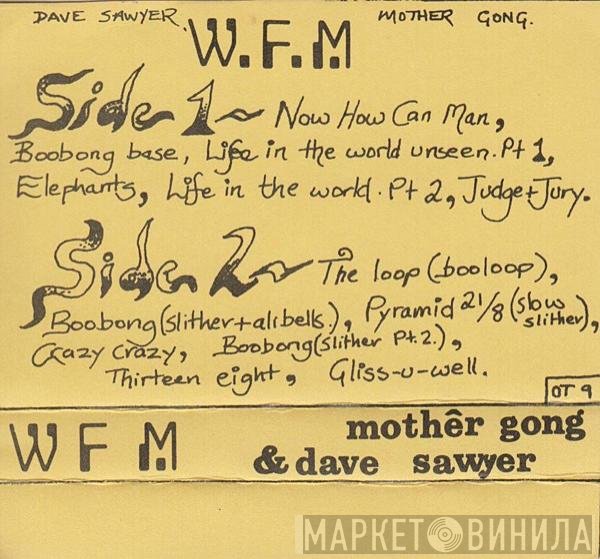 DAVE SAWYER. MOTHER GONG.
W.F.M
Side 1~ Now How Can Man,
Boobong base, Life in the world unseen. Pt 1,
Elephants, Life in the world. Pt 2, Judge + Jury.
Side 2~ The loop (booloop),
Boobong (slither + alibells.), Pyramid 21/8 (slow slither),
Crazy Crazy, Boobong (slither Pt. 2.),
Thirteen eight, Gliss-u-well.
OT 9
WFM mothêr gong
& dave sawyer
МАРКЕТ ВИНИЛА